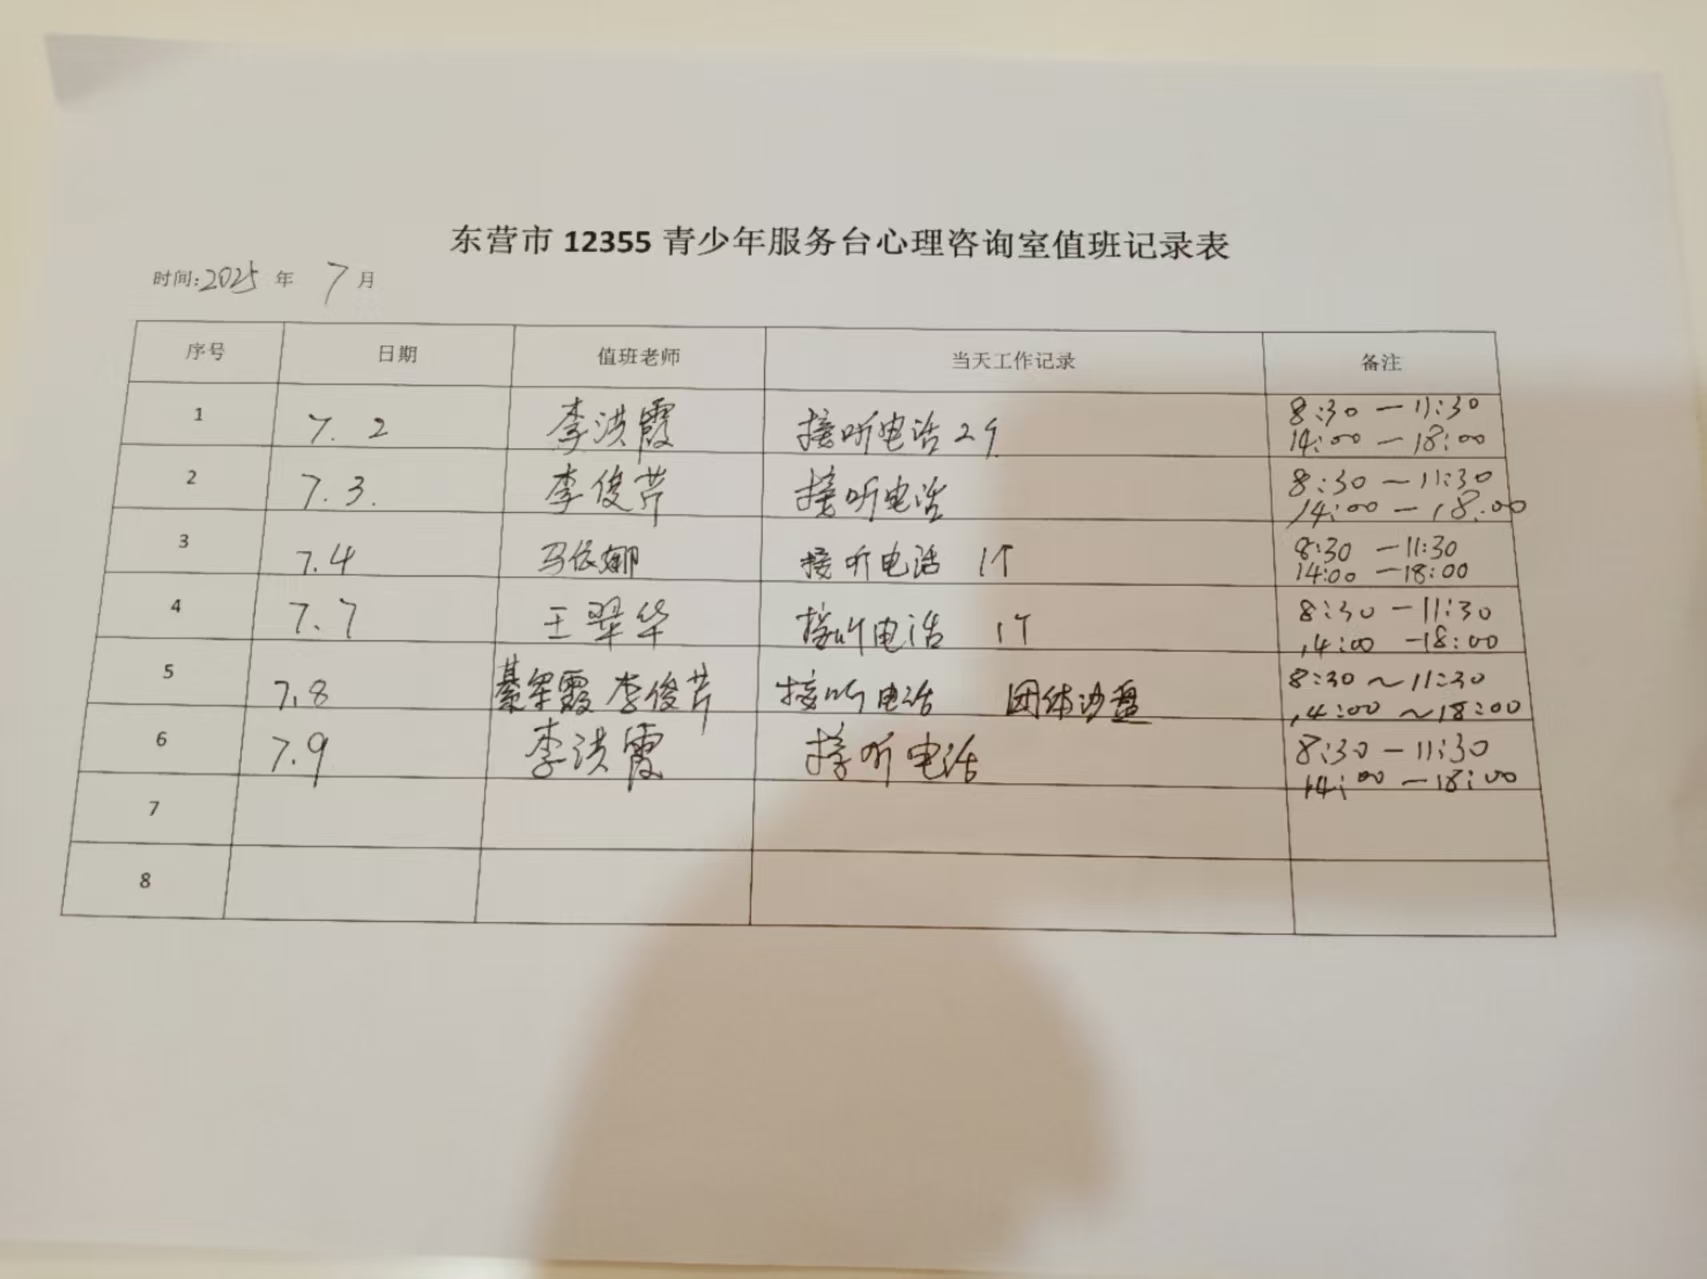 东营市 12355 青少年服务台心理咨询室值班记录表
时间:2025 年 7 月
序号 日期 值班老师 当天工作记录 备注
1 7.2 李洪霞 接听电话2个 8:30—11:30
14:00—18:00
2 7.3. 李俊芹 接听电话 8:30～11:30
14:00—18:00
3 7.4 马依娜 接听电话 1个 8:30—11:30
14:00—18:00
4 7.7 王翠华 接听电话 1个 8:30—11:30
14:00—18:00
5 7.8 綦军霞 李俊芹 接听电话 团体沙盘 8:30～11:30
14:00～18:00
6 7.9 李洪霞 接听电话 8:30—11:30
14:00—18:00
7
8